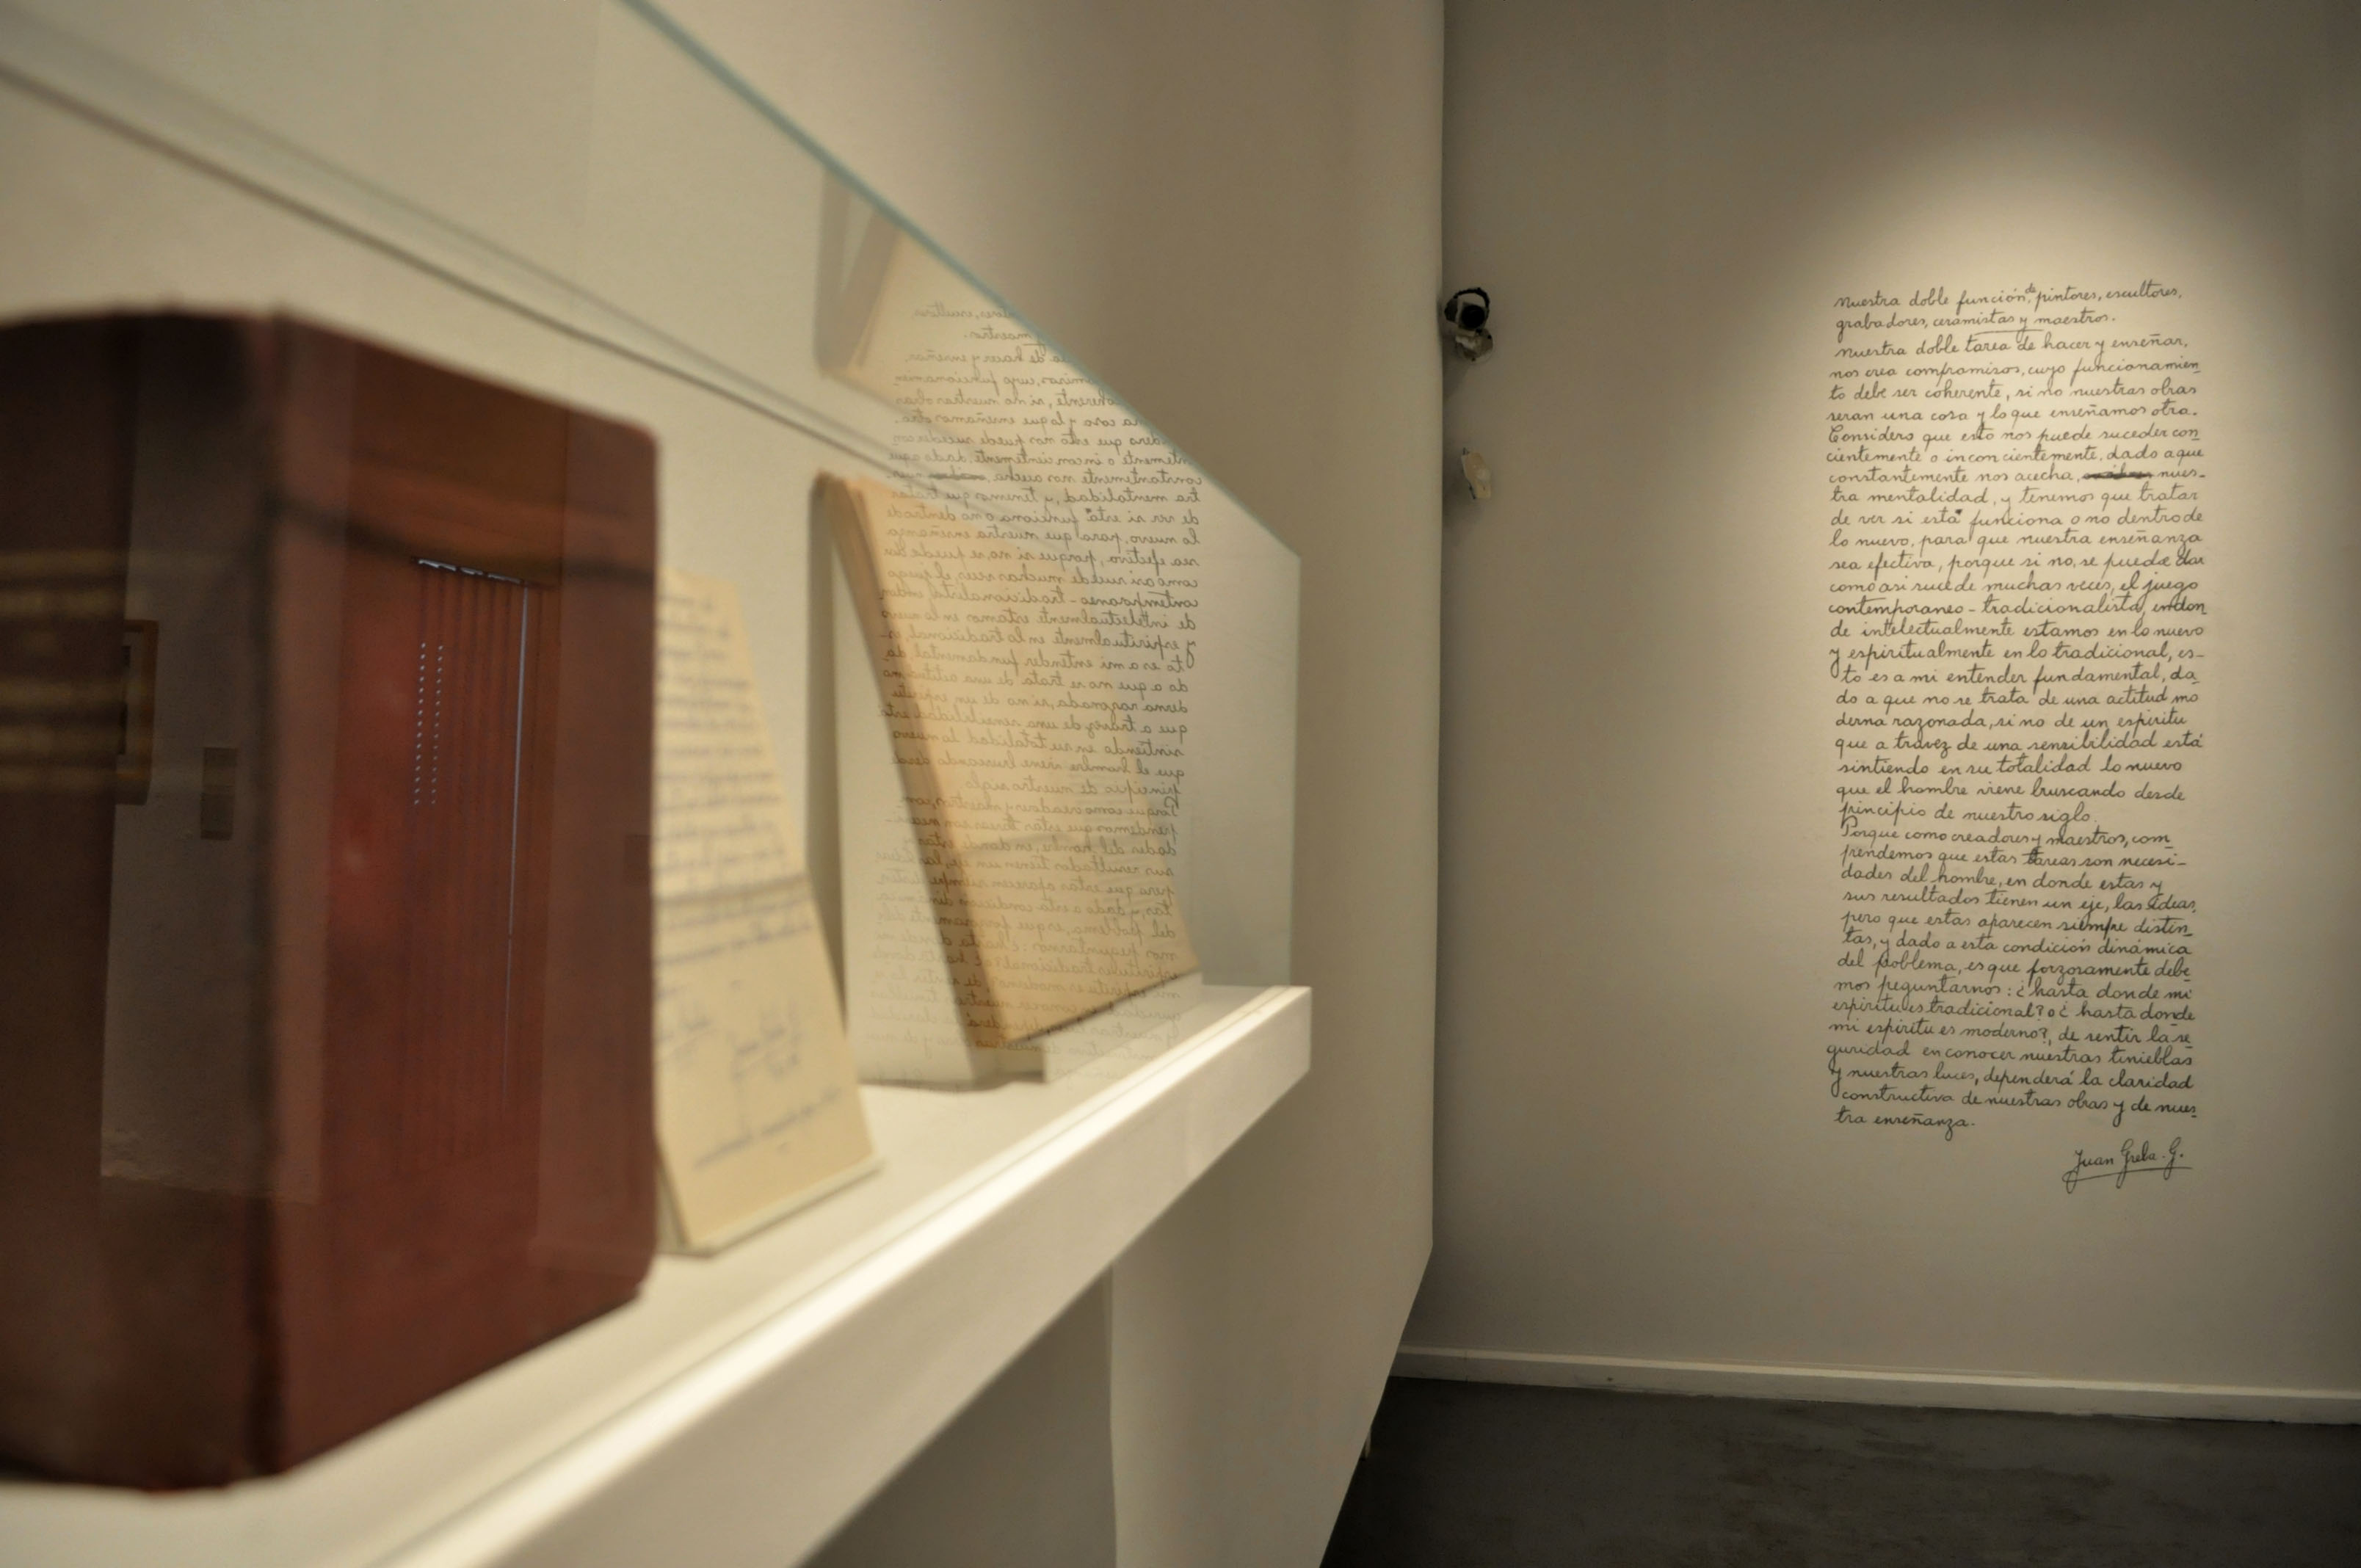 nuestra doble función de pintores, escultores,
grabadores, ceramistas y maestros.
nuestra doble tarea de hacer y enseñar,
nos crea compromisos, cuyo funcionamien
to debe ser coherente, si no nuestras obras
seran una cosa y lo que enseñamos otra.
Considero que esto nos puede suceder con
cientemente o inconcientemente, dado a que
constantemente nos acecha, nues-
tra mentalidad, y tenemos que tratar
de ver si está funciona o no dentro de
lo nuevo, para que nuestra enseñanza
sea efectiva, porque si no, se puede dar
como asi sucede muchas veces, el juego
contemporaneo - tradicionalista, endon
de intelectualmente estamos en lo nuevo
y espiritualmente en lo tradicional, es-
to es a mi entender fundamental, da
do a que no se trata de una actitud mo
derna razonada, si no de un espiritu
que a travez de una sensibilidad está
sintiendo en su totalidad lo nuevo
que el hombre viene buscando desde
principio de nuestro siglo.
Porque como creadores y maestros, com
prendemos que estas tareas son necesi-
dades del hombre, en donde estas y
sus resultados tienen un eje, las ideas,
pero que estas aparecen siempre distin
tas, y dado a esta condición dinámica
del problema, es que forzosamente debe
mos peguntarnos: ¿hasta donde mi
espiritu es tradicional? o ¿ hasta donde
mi espiritu es moderno?, de sentir la se
guridad en conocer nuestras tinieblas
y nuestras luces, dependerá la claridad
constructiva de nuestras obras y de nues
tra enseñanza.
Juan Grela. G.